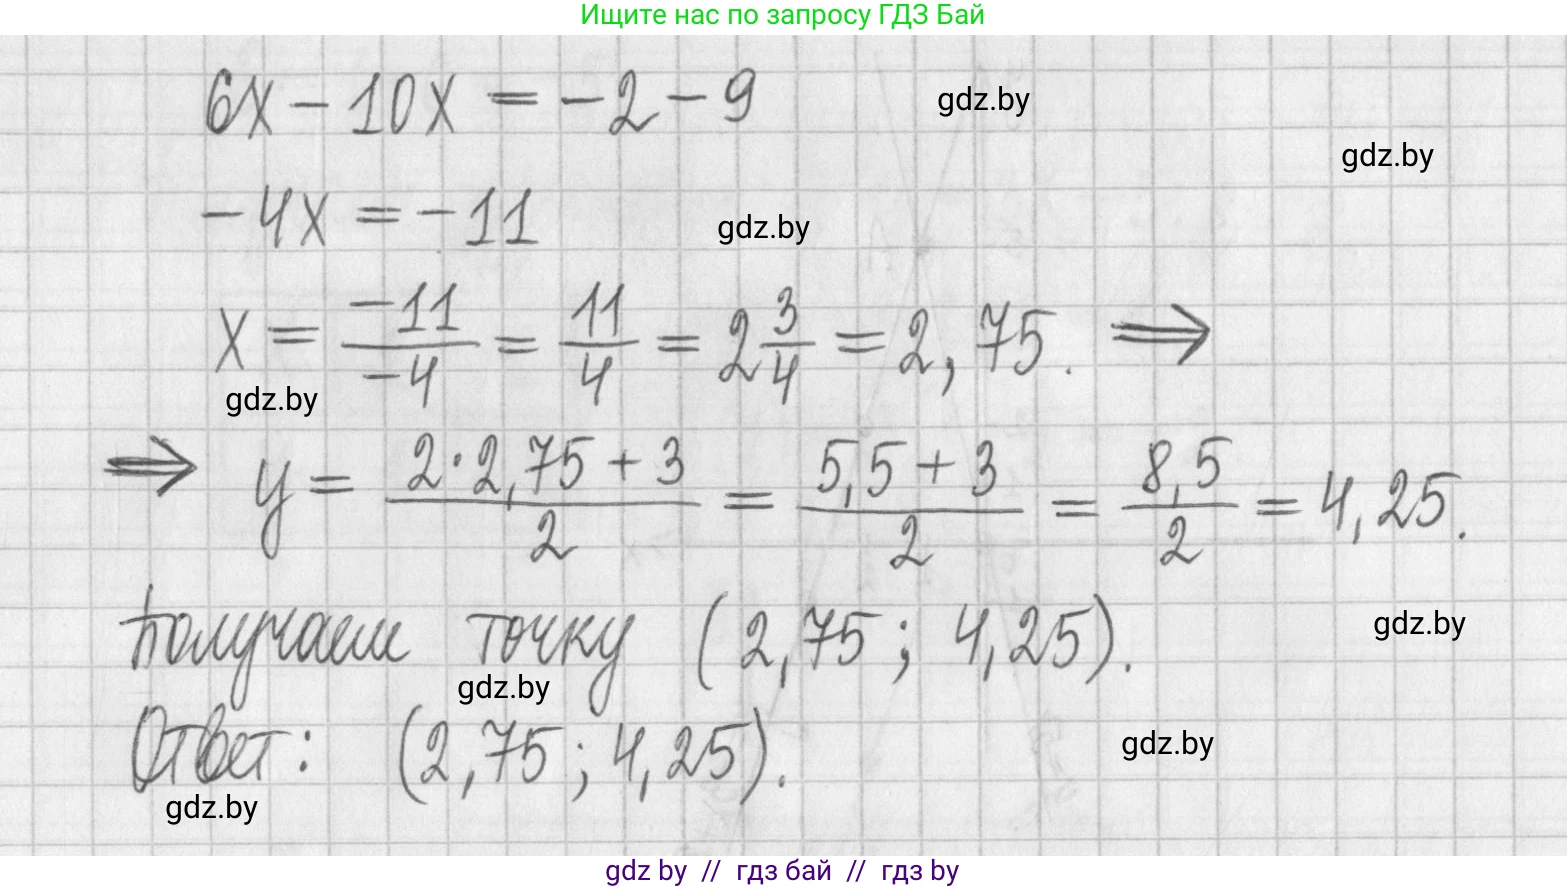 Ищите нас по запросу ГДЗ Бай
6x - 10x = -2 - 9
gdz.by
gdz.by
-4x = -11
gdz.by
x = -11/-4 = 11/4 = 2 3/4 = 2,75. ⇒
gdz.by
⇒ y = 2·2,75 + 3/2 = 5,5 + 3/2 = 8,5/2 = 4,25.
Получаем точку (2,75; 4,25).
gdz.by
gdz.by
Ответ: (2,75; 4,25).
gdz.by
gdz.by
gdz by // гдз бай // гдз by